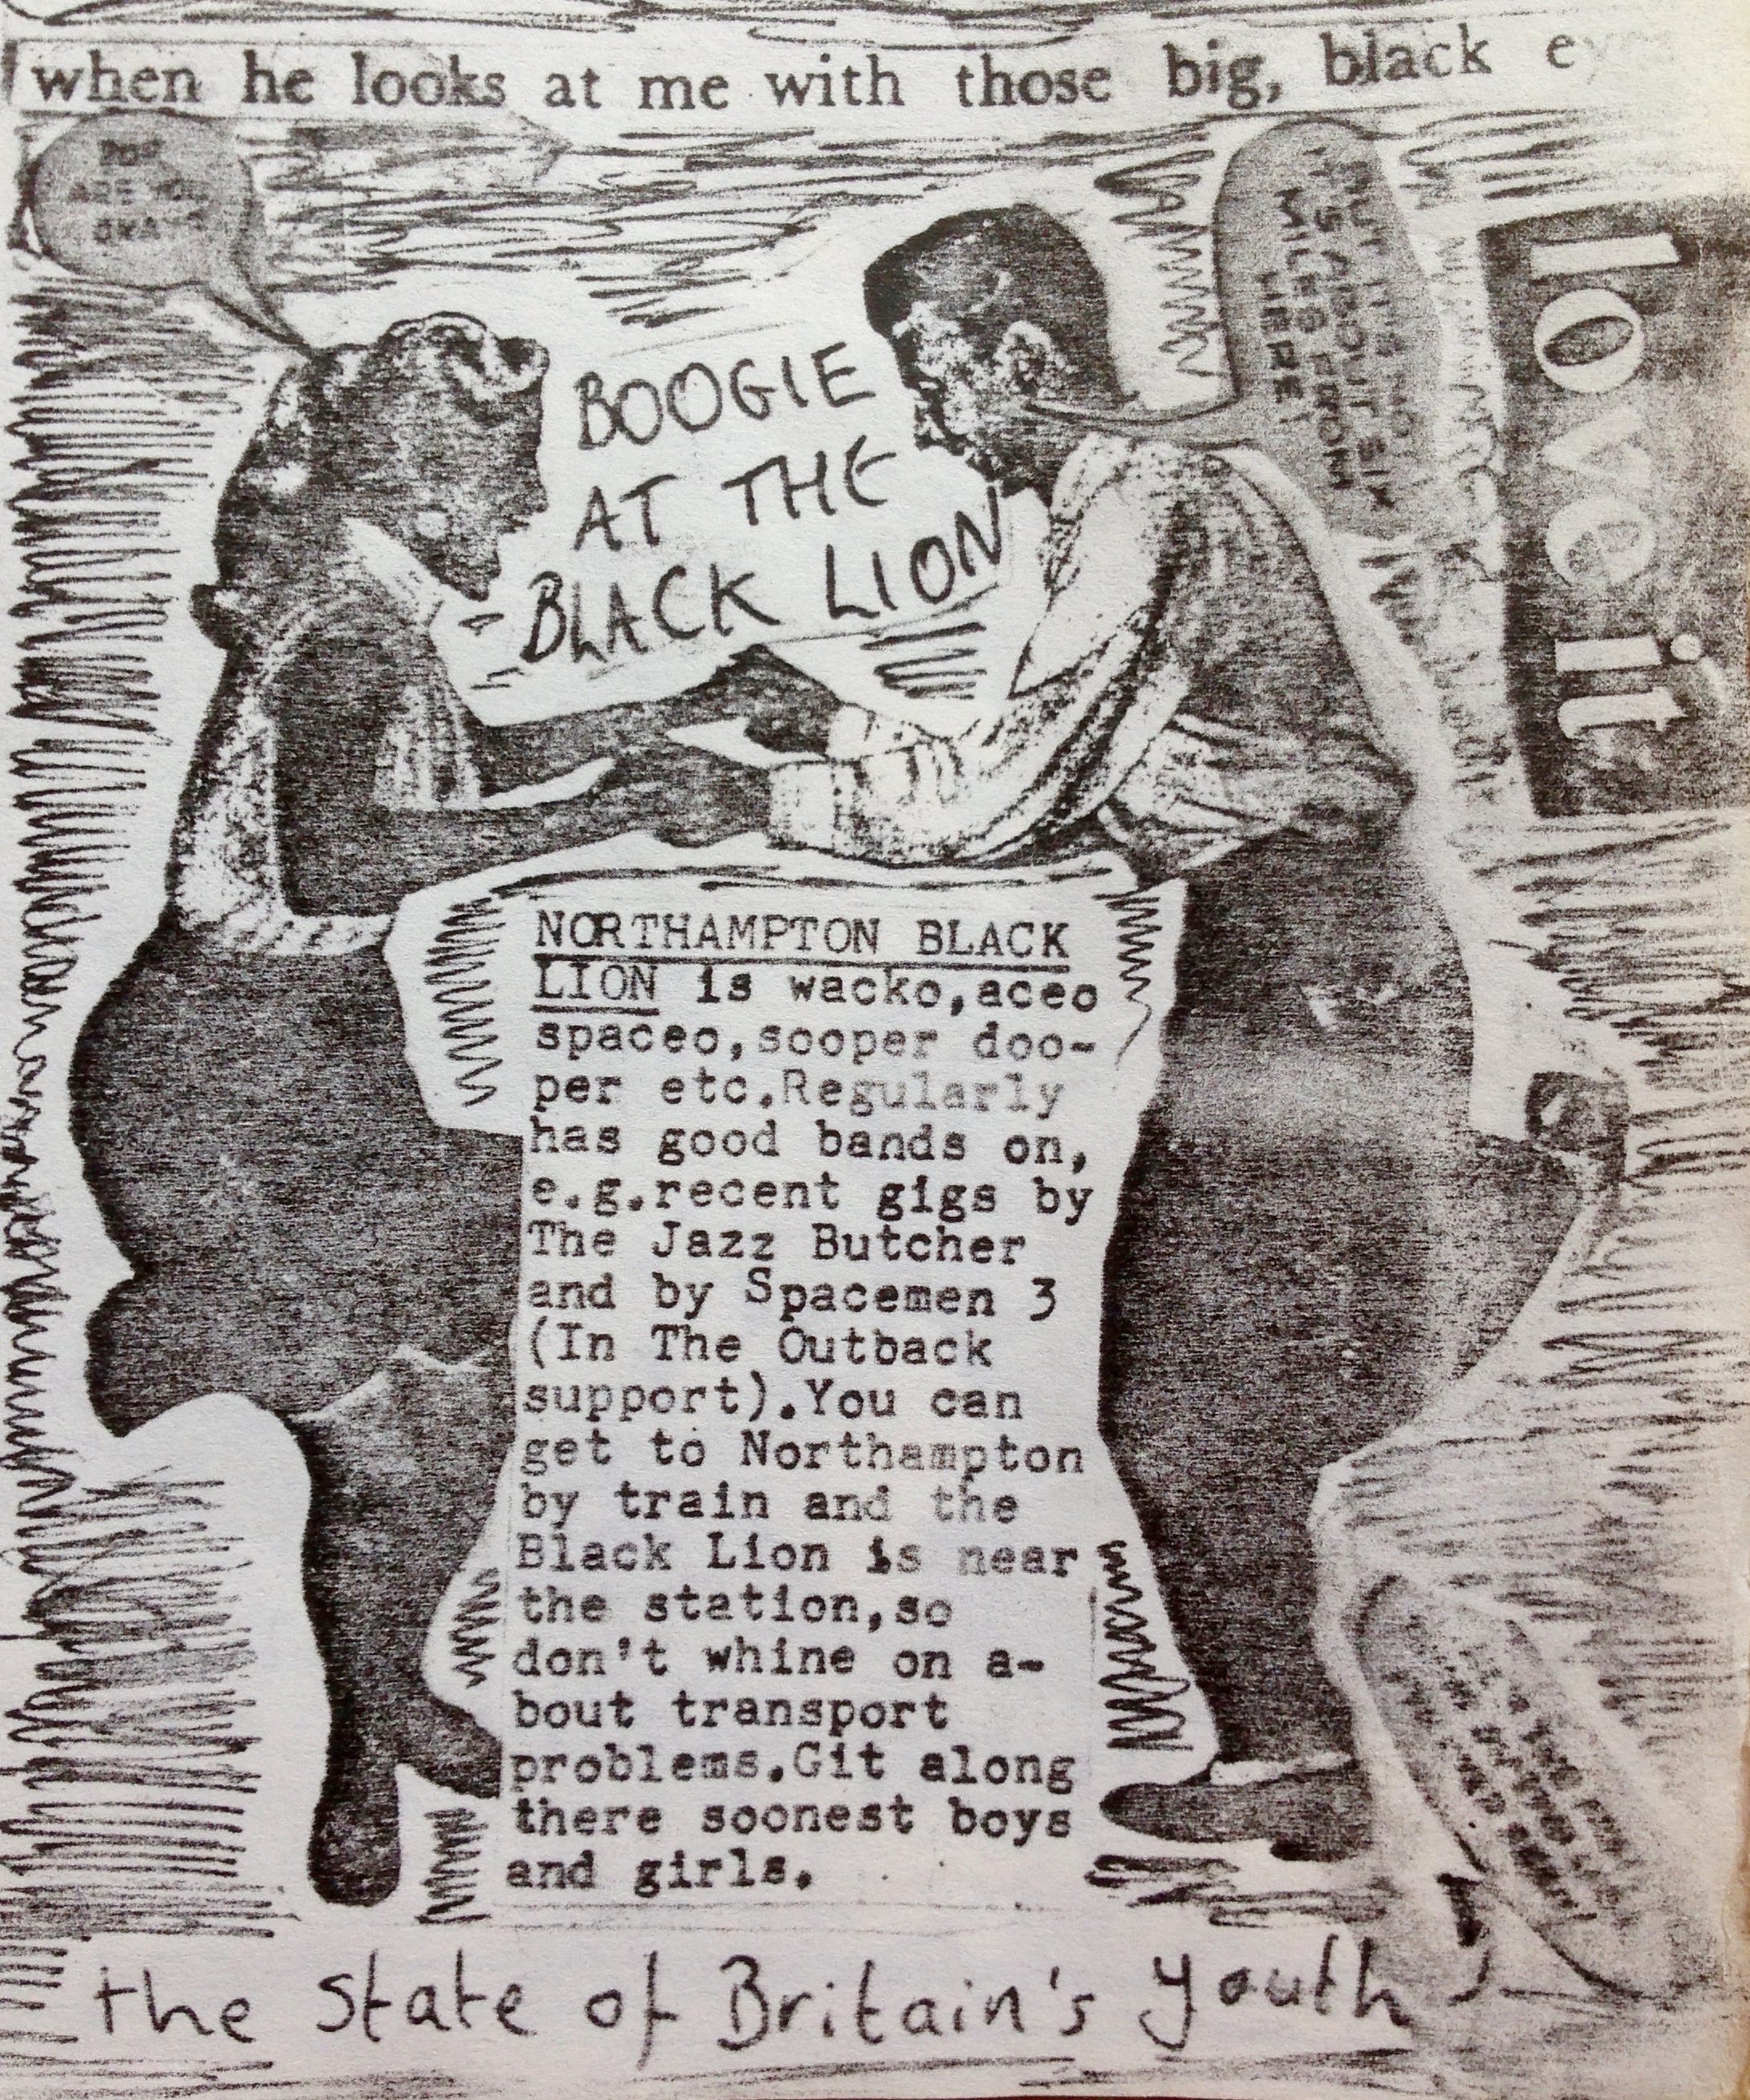 when he looks at me with those big, black
ARE YOU
BOOGIE
AT THE
BLACK LION
MILES FROM
HERE!
love it
NORTHAMPTON BLACK
LION is wacko,aceo
spaceo,sooper doo-
per etc.Regularly
has good bands on,
e.g.recent gigs by
The Jazz Butcher
and by Spacemen 3
(In The Outback
support).You can
get to Northampton
by train and the
Black Lion is near
the station,so
don't whine on a-
bout transport
problems.Git along
there soonest boys
and girls.
the state of Britain's youth